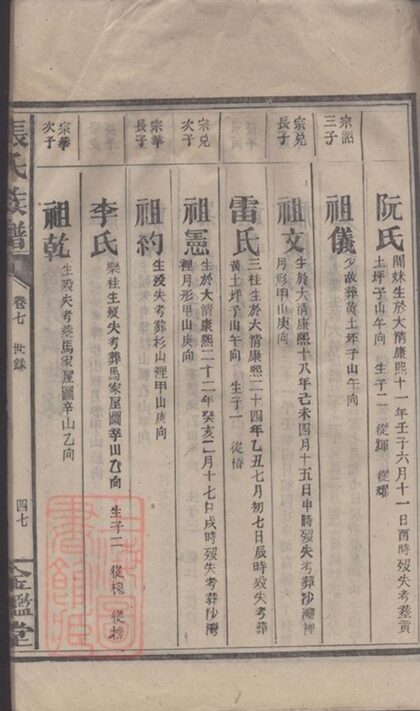 阮氏
閣妹生於大清康熙十一年壬子六月十一日酉時歿失考葬黃
土坪子山午向 生子二 從輝 從耀
宗詔
三子
祖儀
少故葬黃土坪子山午向
宗兌
長子
祖文
生於大清康熙十八年己未四月十五日申時歿失考葬沙灣裡
月形甲山庚向
雷氏
三桂生於大清康熙二十四年乙丑七月初七日辰時歿失考葬
黃土坪子山午向 生子一 從椿
宗兌
次子
祖憲
生於大清康熙二十二年癸亥二月十七日戌時歿失考葬沙灣
裡月形甲山庚向
宗華
長子
祖約
生歿失考葬杉山裡甲山庚向
李氏
樂桂生歿失考葬馬家屋圖辛山乙向 生子二 從槐 從榜
宗華
次子
祖乾
生歿失考葬馬家屋圖辛山乙向
張氏族譜
卷七 世錄
四七
金鑑堂